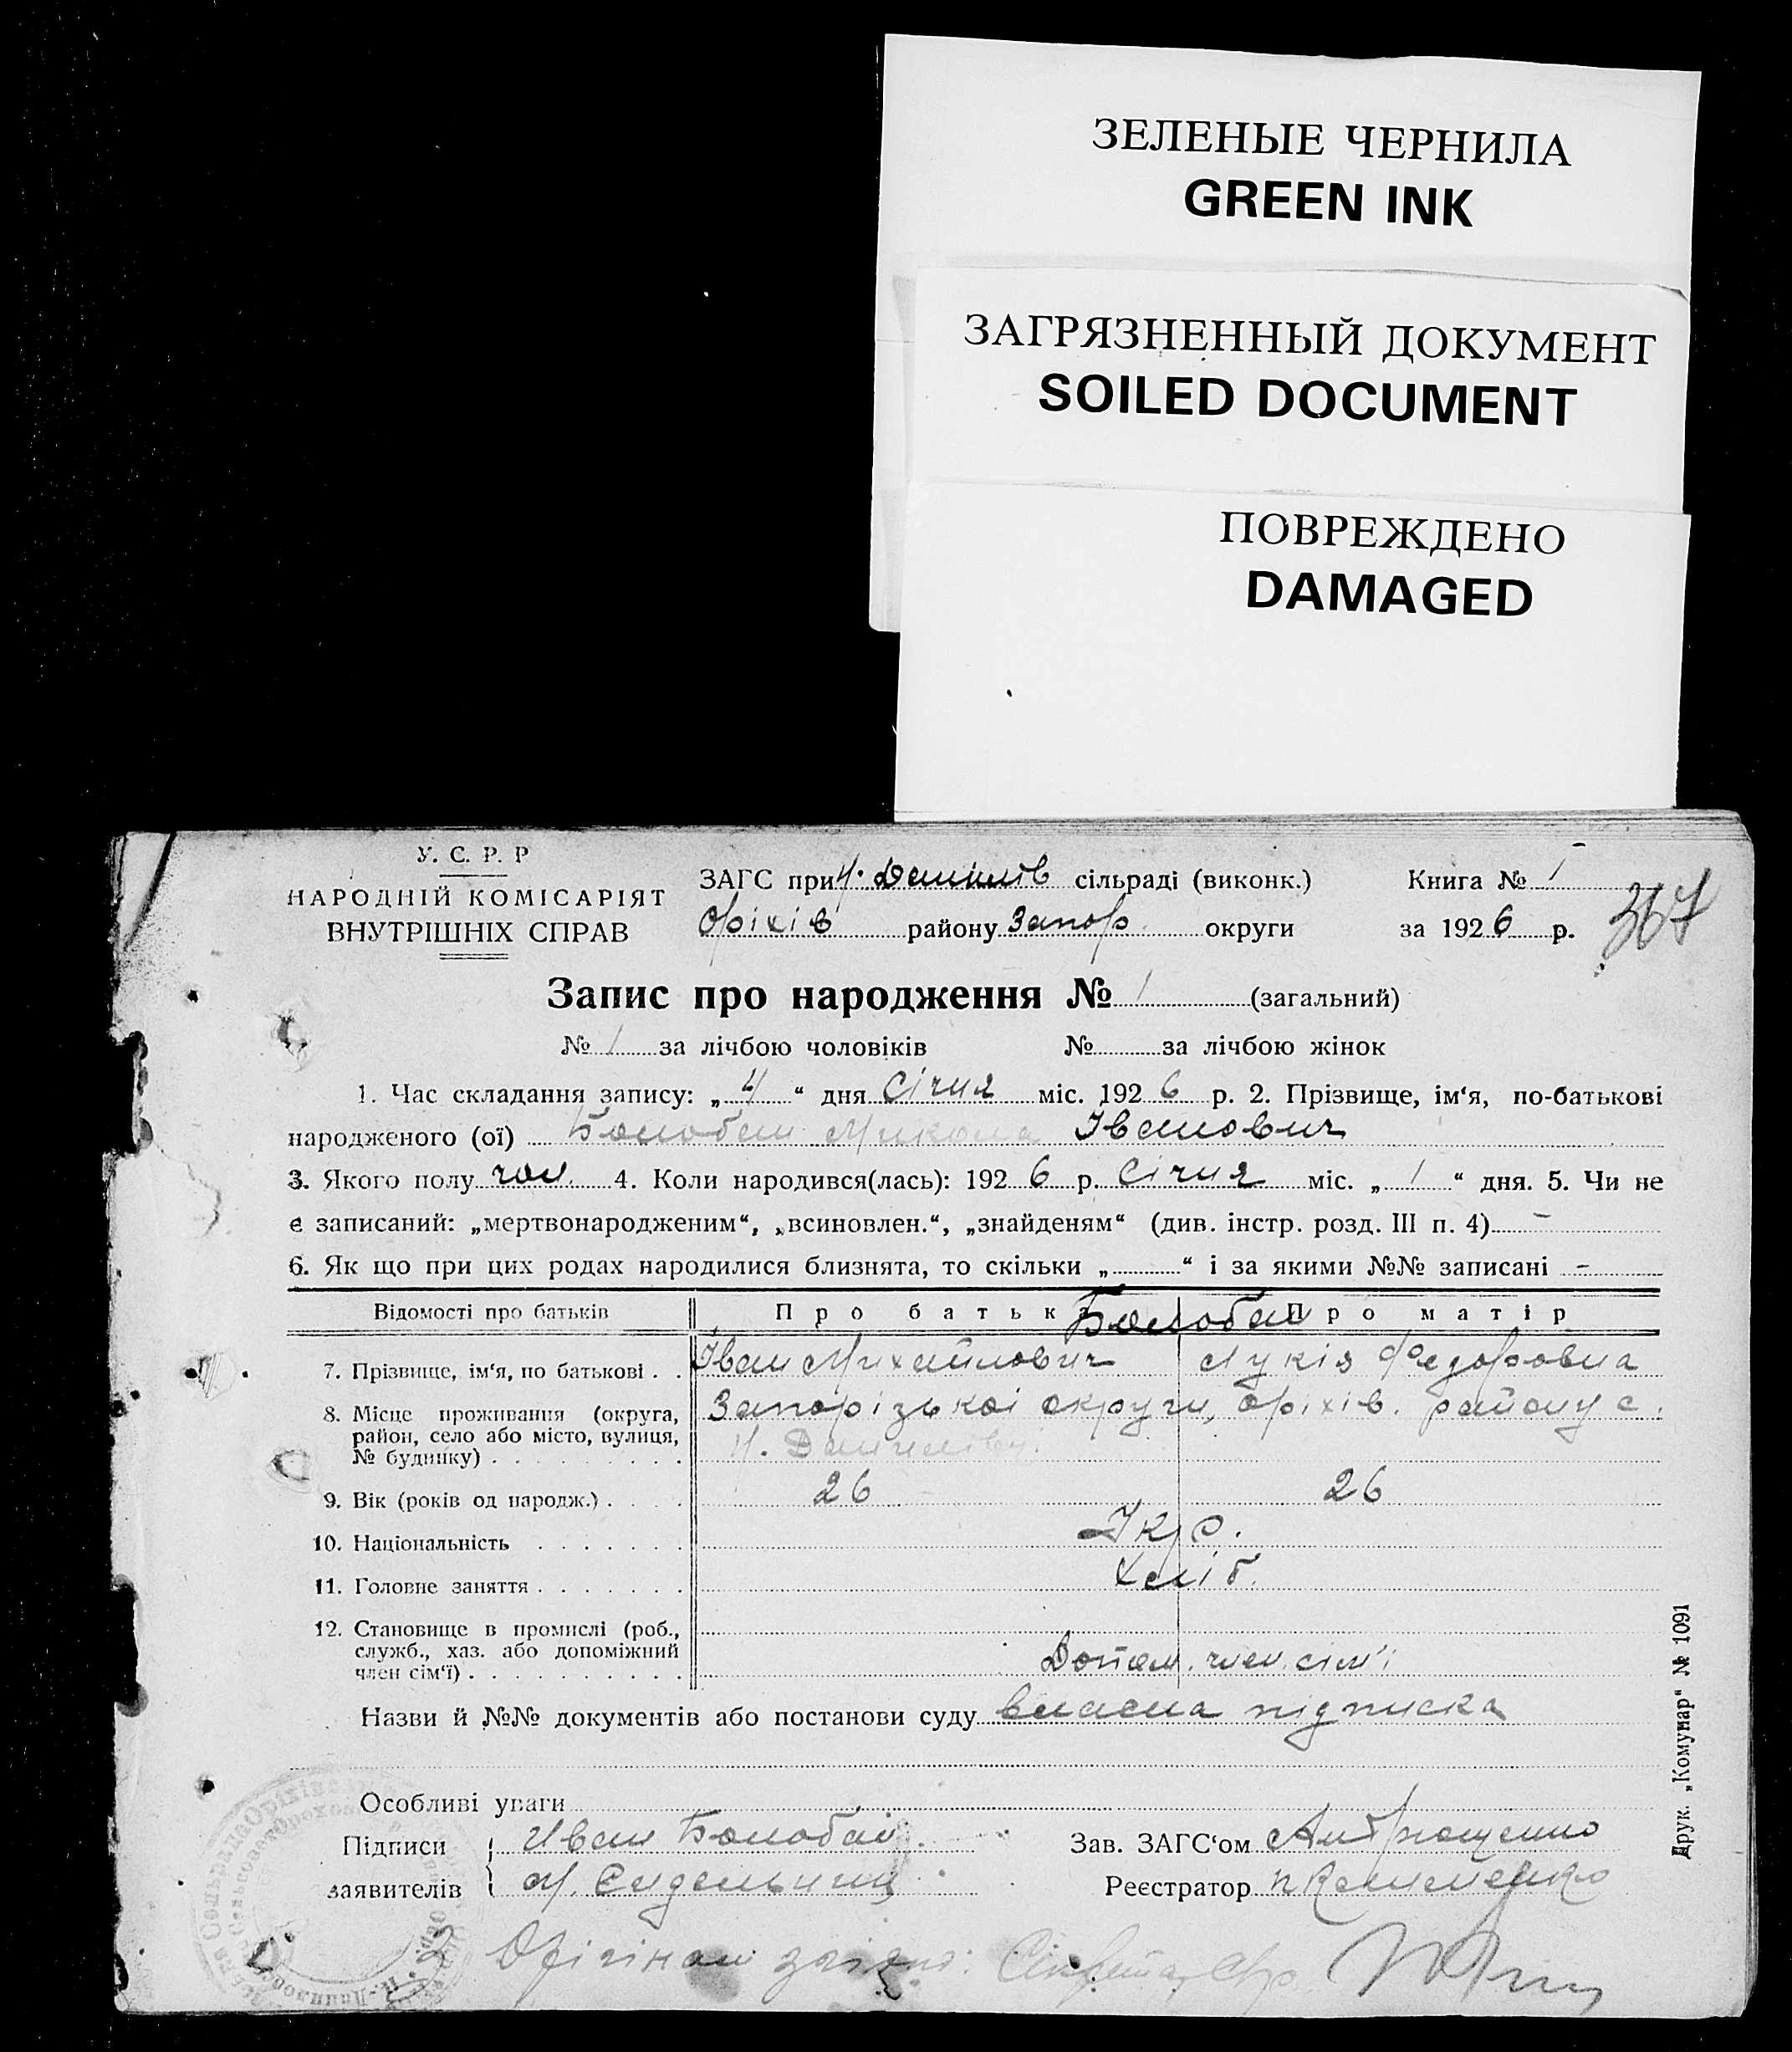 ЗЕЛЕНЫЕ ЧЕРНИЛА
GREEN INK
ЗАГРЯЗНЕННЫЙ ДОКУМЕНТ
SOILED DOCUMENT
ПОВРЕЖДЕНО
DAMAGED
У. С. Р. Р
НАРОДНІЙ КОМІСАРІЯТ
ВНУТРІШНІХ СПРАВ
ЗАГС при Н. Данилів сільраді (виконк.) Книга № 1
Оріхів району Запор. округи за 1926 р.
367
Запис про народження № 1 (загальний)
№ 1 за лічбою чоловіків № за лічбою жінок
1. Час складання запису: „ 4 “ дня Січня міс. 1926 р. 2. Прізвище, ім‘я, по-батькові
народженого (ої) Болобан Микола Іванович
3. Якого полу чол. 4. Коли народився(лась): 1926 р. Січня міс. „ 1 “ дня. 5. Чи не
є записаний: „мертвонародженим“, „всиновлен.“, „знайденям“ (див. інстр. розд. III п. 4) -
6. Як що при цих родах народилися близнята, то скільки „ “ і за якими №№ записані -
Відомості про батьків Про батька Про матір
Болобан
7. Прізвище, ім‘я, по батькові . . Іван Михайлович Лукія Федоровна
8. Місце проживання (округа, район, село або місто, вулиця, № будинку) . Запорізької округи, Оріхів. району с.
Н. Данилівці
9. Вік (років од народж.) . 26 26
10. Національність Укр.
11. Головне заняття Хліб.
12. Становище в промислі (роб., служб., хаз. або допоміжний член сім‘ї) . Допом. член. сім'ї
Назви й №№ документів або постанови суду власна підписка
Особливі уваги
Підписи заявителів Иван Болобан
Зав. ЗАГС‘ом Антрющенко
Реєстратор
Орігіном згідно: Сікретар с/р.
Друк. „Комунар“ № 1091